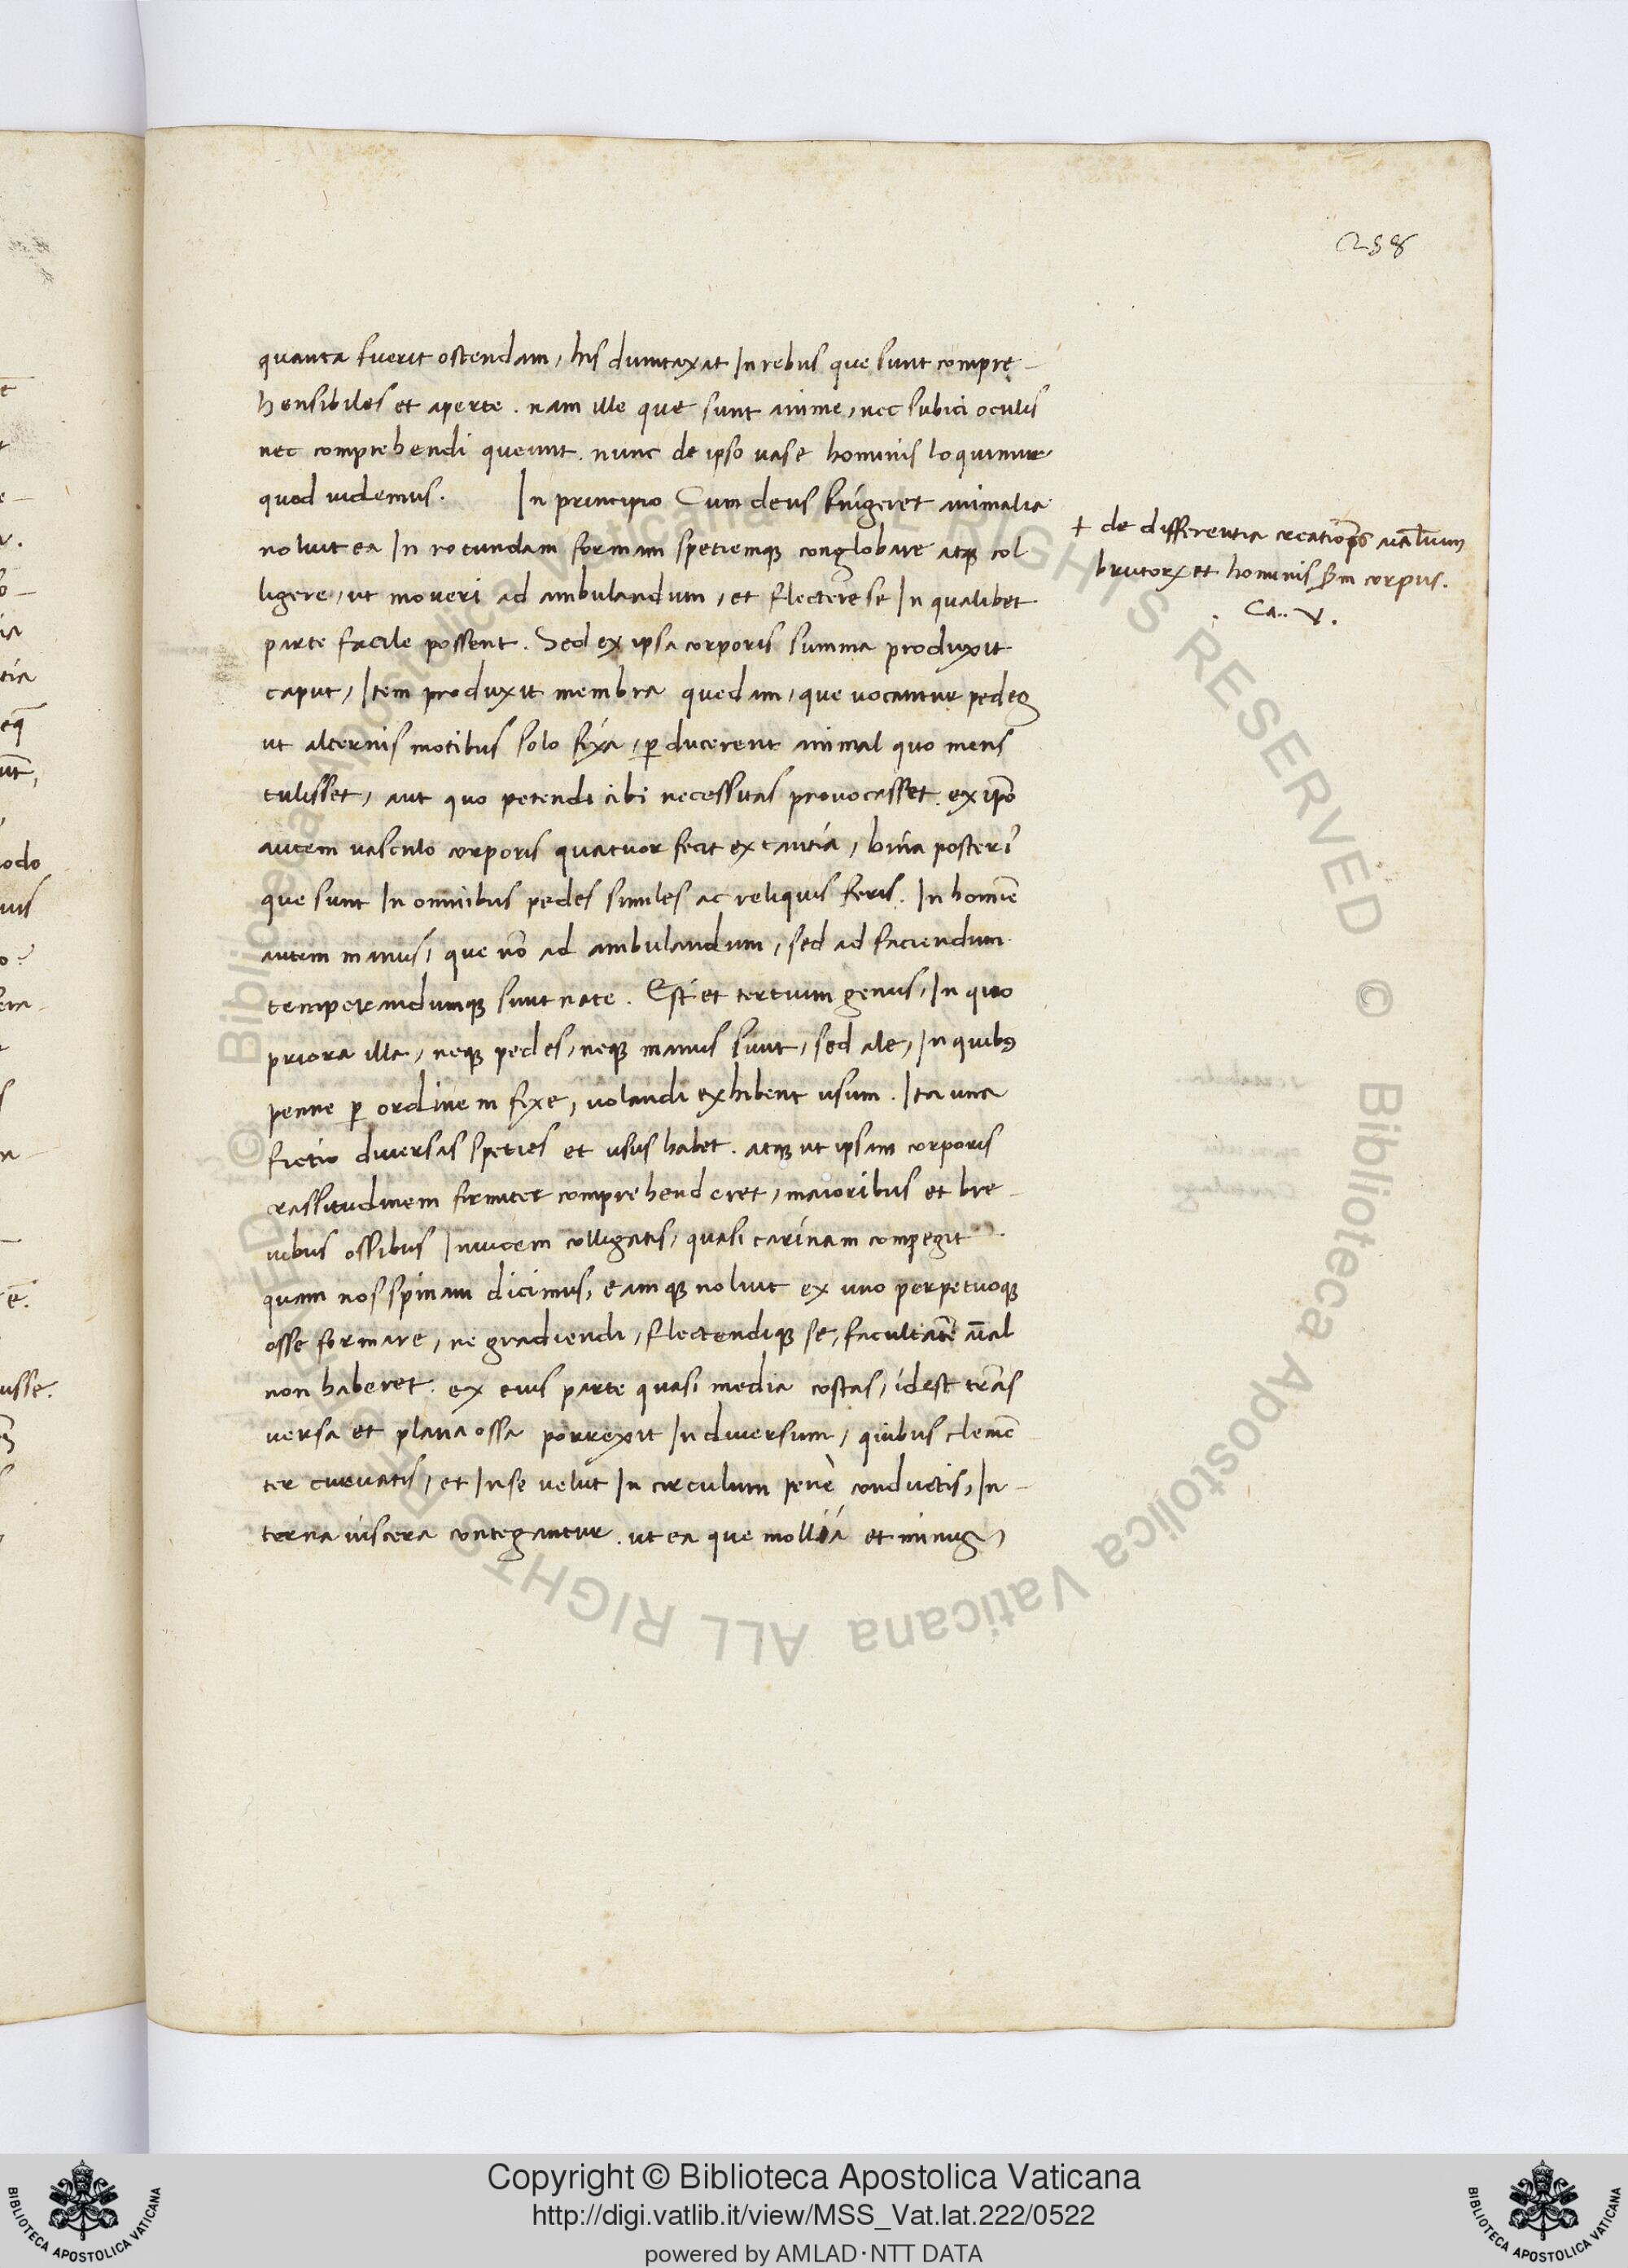 258
quanta fuerit ostendam, his dumtaxat In rebus que sunt compre-
hensibiles et aperte. nam ille que sunt anime, nec subici oculis
nec comprehendi queunt. nunc de ipso uase hominis loquimur
quod uidemus. In principio Cum deus fingeret animalia
noluit ea In rotundam formam spetiemqꝫ conglobare atqꝫ col
ligere, ut moueri ad ambulandum, et flectere se In qualibet
parte facile possent. Sed ex ipsa corporis summa produxit
caput, Item produxit membra quedam, que uocantur pedes
ut alternis motibus solo fixa, ꝑducerent animal quo mens
tulisset, aut quo petendi cibi necessitas prouocasset. ex ip̄o
autem uasculo corporis quatuor fecit extantia, bina posteri᷑
que sunt In omnibus pedes similes ac reliquis feris. In homīe
autem manus, que nō ad ambulandum, sed ad faciendum
temperandumqꝫ sunt nate. Est et tertium genus, In quo
priora illa, neqꝫ pedes, neqꝫ manus sunt, sed ale, In quibꝰ
penne ꝑ ordinem fixe, uolandi exhibent usum. Ita una
fictio diuersas speties et usus habet. atqꝫ ut ipsam corporis
crassitudinem firmiter comprehenderet, maioribus et bre-
uibus ossibus Inuicem colligatis, quasi carinam compegit
quam nos spinam dicimus, eamqꝫ noluit ex uno perpetuoqꝫ
osse formare, ne gradiendi, flectendiqꝫ se, facultatē aīal
non haberet. ex eius parte quasi media costas, idest trans
uersa et plana ossa porrexit In diuersum, quibus clemē-
ter curuatis, et In se uelut In circulum pene conductis, In-
terna uiscera contegantur. ut ea que mollia et minus
+ de differentia creationis aīalium
brutorꝝ et hominis scd̄m corpus.
Ca.. V.
© Biblioteca Apostolica Vaticana ALL RIGHTS RESERVED © Biblioteca Apostolica Vaticana ALL RIGHTS RESERVED
Copyright © Biblioteca Apostolica Vaticana
http://digi.vatlib.it/view/MSS_Vat.lat.222/0522
powered by AMLAD·NTT DATA
BIBLIOTECA APOSTOLICA VATICANA
BIBLIOTECA APOSTOLICA VATICANA